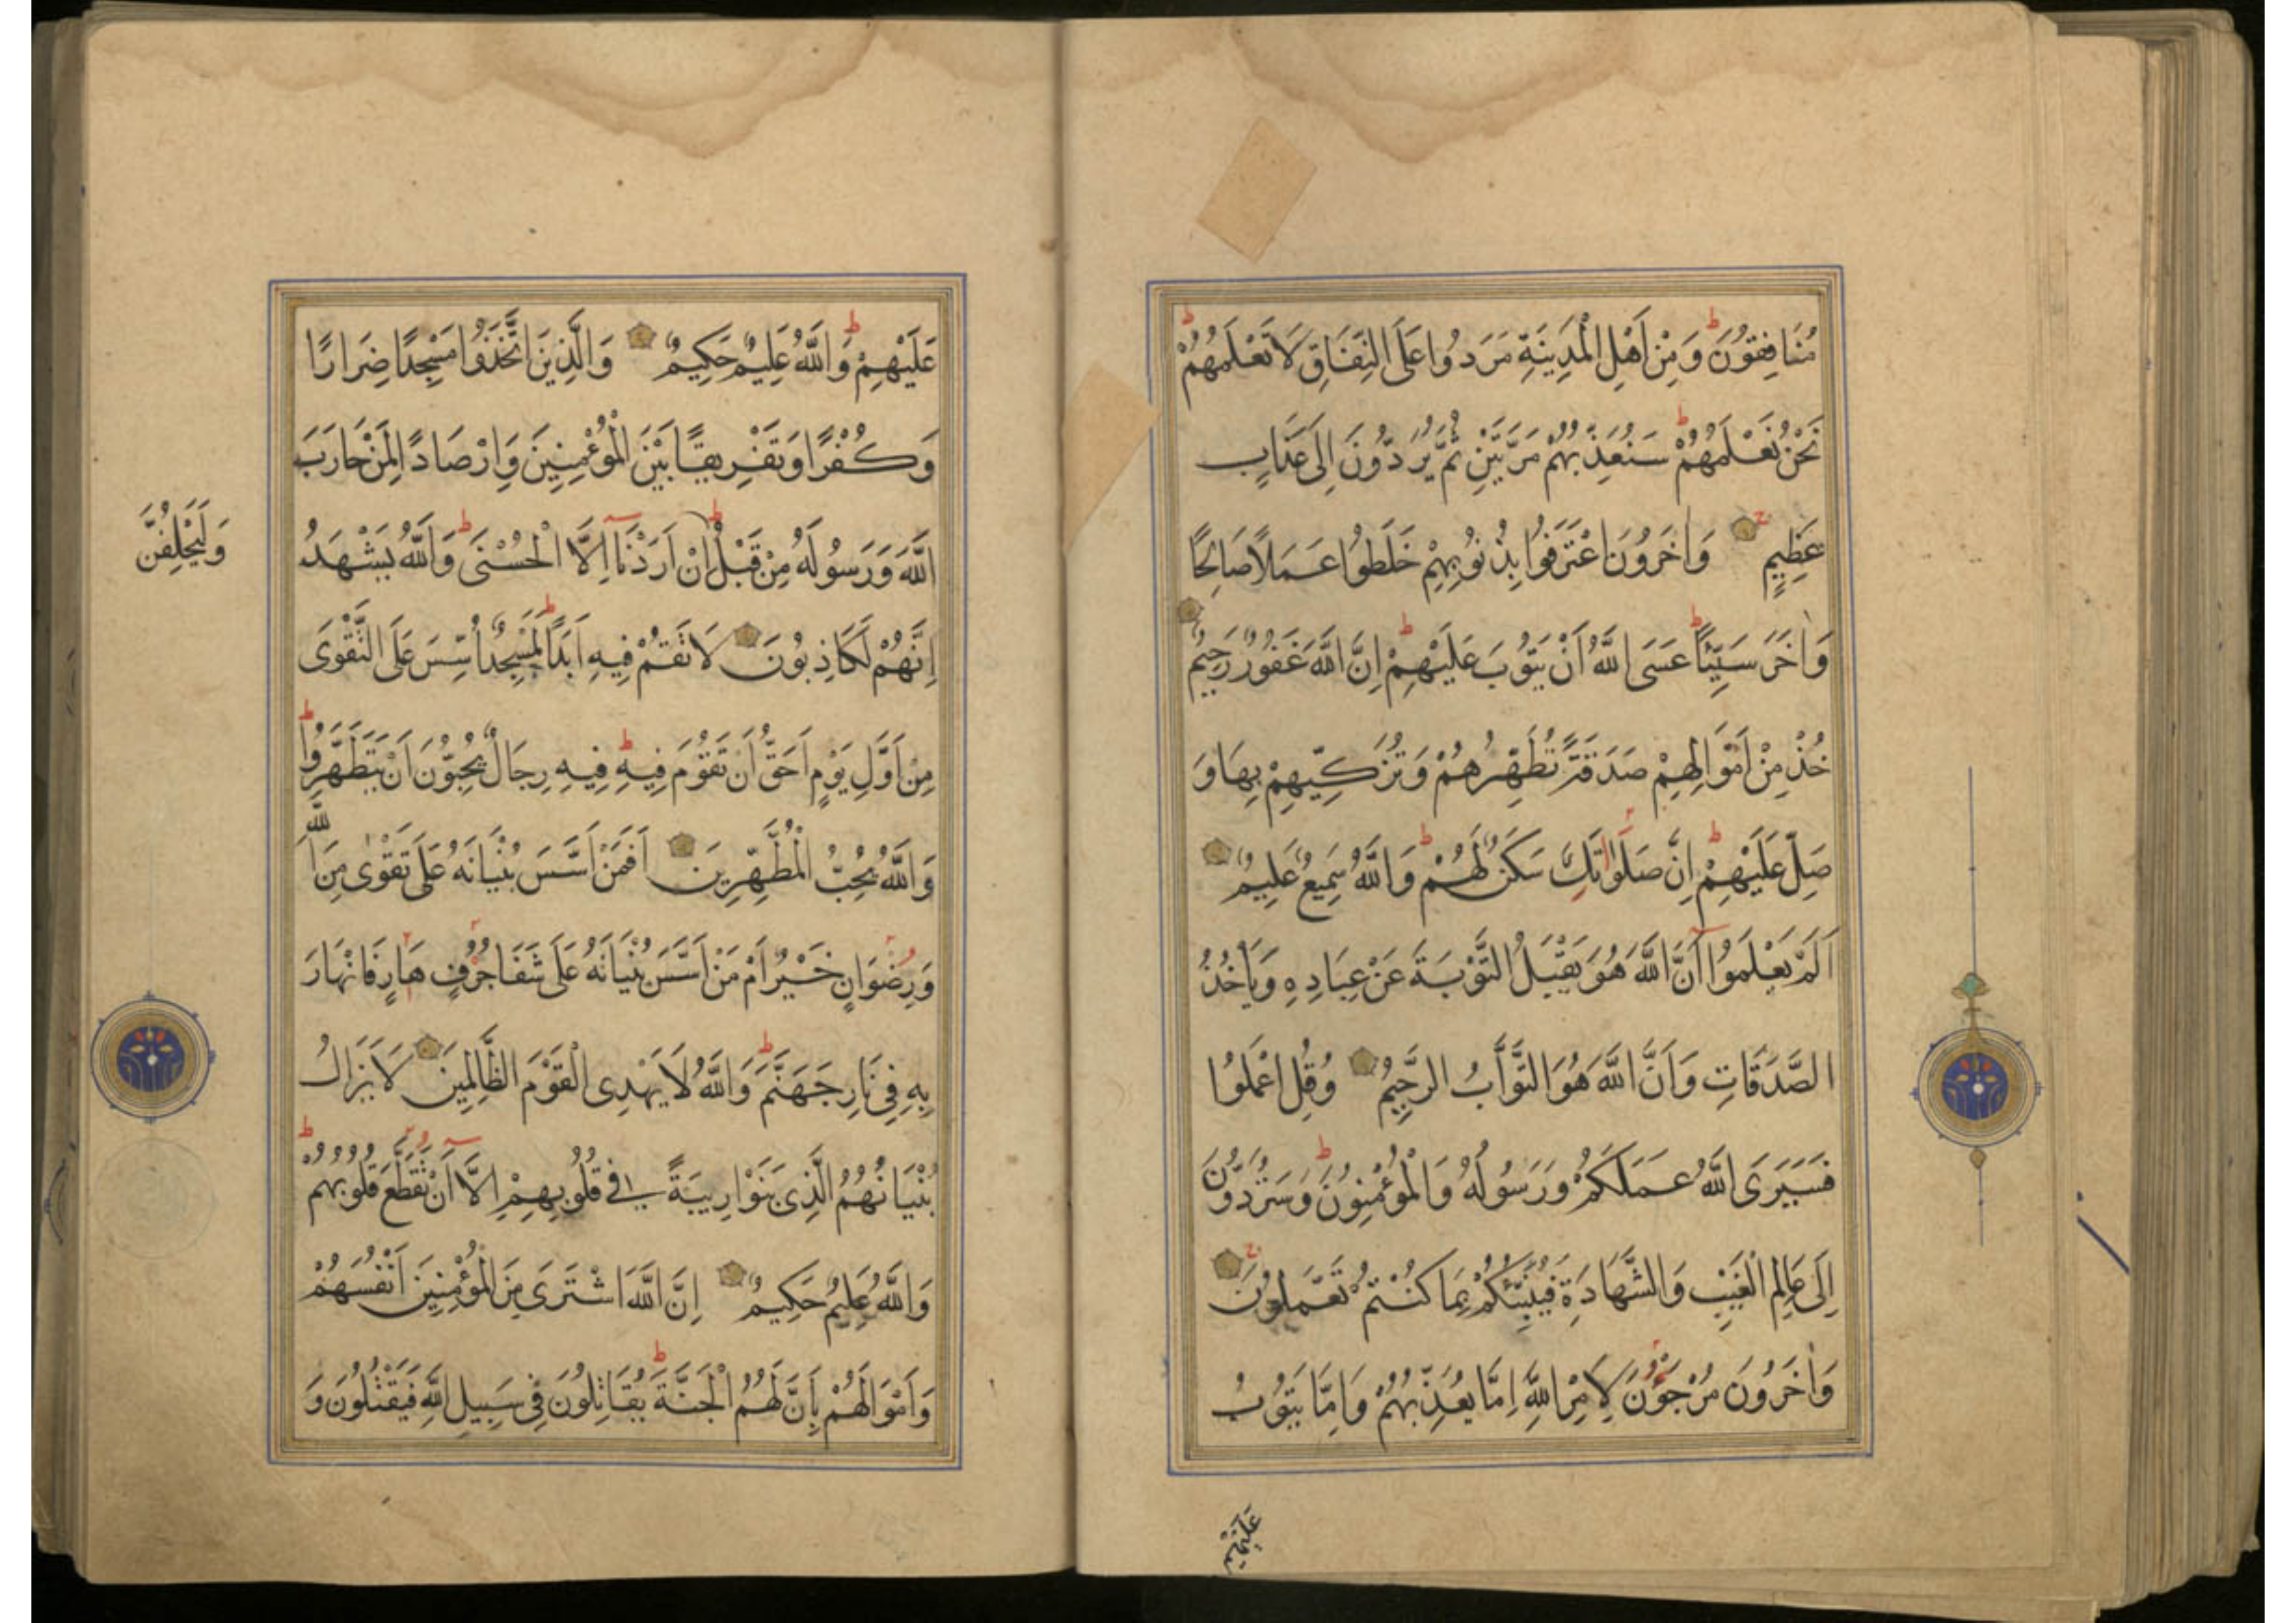 مُنَافِقُونَ وَمِنْ اَهْلِ الْمَدِينَةِ مَرَدُوا عَلَى النِّفَاقِ لَا تَعْلَمُهُمْ
نَحْنُ نَعْلَمُهُمْ سَنُعَذِّبُهُمْ مَرَّتَيْنِ ثُمَّ يُرَدُّونَ اِلَى عَذَابٍ
عَظِيمٍ وَاٰخَرُونَ اعْتَرَفُوا بِذُنُوبِهِمْ خَلَطُوا عَمَلًا صَالِحًا
وَاٰخَرَ سَيِّئًا عَسَى اللَّهُ اَنْ يَتُوبَ عَلَيْهِمْ اِنَّ اللَّهَ غَفُورٌ رَحِيمٌ
خُذْ مِنْ اَمْوَالِهِمْ صَدَقَةً تُطَهِّرُهُمْ وَتُزَكِّيهِمْ بِهَا وَ
صَلِّ عَلَيْهِمْ اِنَّ صَلَوَاتَكَ سَكَنٌ لَهُمْ وَاللَّهُ سَمِيعٌ عَلِيمٌ
اَلَمْ يَعْلَمُوا اَنَّ اللَّهَ هُوَ يَقْبَلُ التَّوْبَةَ عَنْ عِبَادِهِ وَيَأْخُذُ
الصَّدَقَاتِ وَاَنَّ اللَّهَ هُوَ التَّوَّابُ الرَّحِيمُ وَقُلِ اعْمَلُوا
فَسَيَرَى اللَّهُ عَمَلَكُمْ وَرَسُولُهُ وَالْمُؤْمِنُونَ وَسَتُرَدُّونَ
اِلَى عَالِمِ الْغَيْبِ وَالشَّهَادَةِ فَيُنَبِّئُكُمْ بِمَا كُنْتُمْ تَعْمَلُونَ
وَاٰخَرُونَ مُرْجَوْنَ لِاَمْرِ اللَّهِ اِمَّا يُعَذِّبُهُمْ وَاِمَّا يَتُوبُ
عَلَيْهِمْ
عَلَيْهِمْ وَاللَّهُ عَلِيمٌ حَكِيمٌ وَالَّذِينَ اتَّخَذُوا مَسْجِدًا ضِرَارًا
وَكُفْرًا وَتَفْرِيقًا بَيْنَ الْمُؤْمِنِينَ وَاِرْصَادًا لِمَنْ حَارَبَ
اللَّهَ وَرَسُولَهُ مِنْ قَبْلُ اِنْ اَرَدْنَا اِلَّا الْحُسْنَى وَاللَّهُ يَشْهَدُ
وَلَيَحْلِفُنَّ
اِنَّهُمْ لَكَاذِبُونَ لَا تَقُمْ فِيهِ اَبَدًا لَمَسْجِدٌ اُسِّسَ عَلَى التَّقْوَى
مِنْ اَوَّلِ يَوْمٍ اَحَقُّ اَنْ تَقُومَ فِيهِ فِيهِ رِجَالٌ يُحِبُّونَ اَنْ يَتَطَهَّرُوا
وَاللَّهُ يُحِبُّ الْمُطَّهِّرِينَ اَفَمَنْ اَسَّسَ بُنْيَانَهُ عَلَى تَقْوٰى مِنَ اللَّهِ
وَرِضْوَانٍ خَيْرٌ اَمْ مَنْ اَسَّسَ بُنْيَانَهُ عَلَى شَفَا جُرُفٍ هَارٍ فَانْهَارَ
بِهِ فِي نَارِ جَهَنَّمَ وَاللَّهُ لَا يَهْدِى الْقَوْمَ الظَّالِمِينَ لَا يَزَالُ
بُنْيَانُهُمُ الَّذِى بَنَوْا رِيبَةً فِي قُلُوبِهِمْ اِلَّا اَنْ تَقَطَّعَ قُلُوبُهُمْ
وَاللَّهُ عَلِيمٌ حَكِيمٌ اِنَّ اللَّهَ اشْتَرَى مِنَ الْمُؤْمِنِينَ اَنْفُسَهُمْ
وَاَمْوَالَهُمْ بِاَنَّ لَهُمُ الْجَنَّةَ يُقَاتِلُونَ فِي سَبِيلِ اللَّهِ فَيَقْتُلُونَ وَ